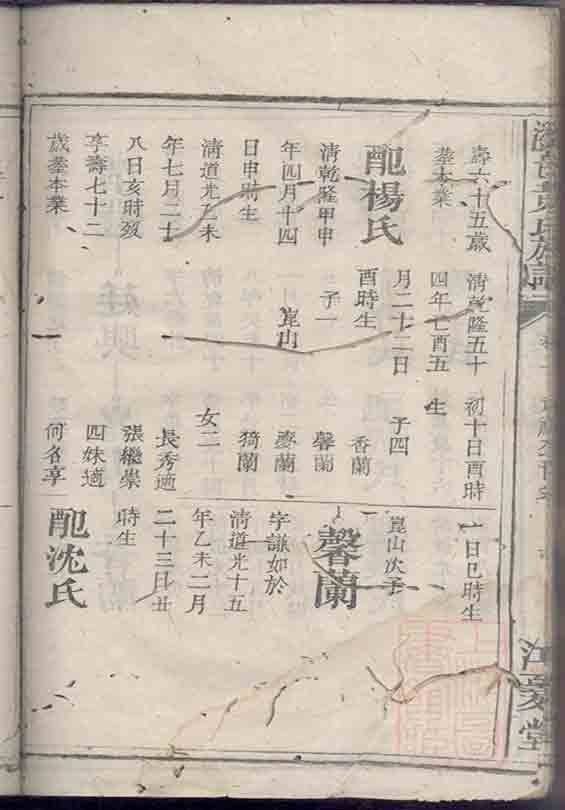 壽六十五歲
葬本業
配楊氏
清乾隆甲申
年四月十四
日申時生
清道光乙未
年七月二十
八日亥時歿
享壽七十二
歲葬本業
清乾隆五十
四年己酉五
月二十二日
酉時生
子一
崑山
初十日酉時
生
子四
香蘭
馨蘭
麥蘭
猗蘭
女二
長秀適
張繼崇
四妹適
何名享
一日巳時生
崑山次子
馨蘭
字謙如於
清道光十五
年乙未二月
二十三日丑
時生
配沈氏
黃氏族譜
江夏堂